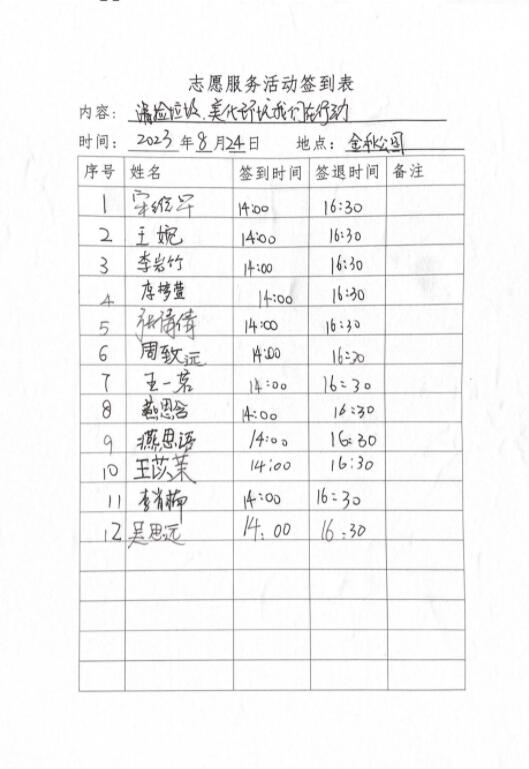 志愿服务活动签到表
内容：清捡垃圾、美化环境我们在行动
时间：2023年8月24日 地点：金秋公园
序号 姓名 签到时间 签退时间 备注
1 14:00 16:30
2 王婉 14:00 16:30
3 李岩竹 14:00 16:30
4 14:00 16:30
5 14:00 16:30
6 周致远 14:00 16:30
7 王一茗 14:00 16:30
8 燕思含 14:00 16:30
9 燕思语 14:00 16:30
10 王苡茉 14:00 16:30
11 李肖楠 14:00 16:30
12 吴思远 14:00 16:30